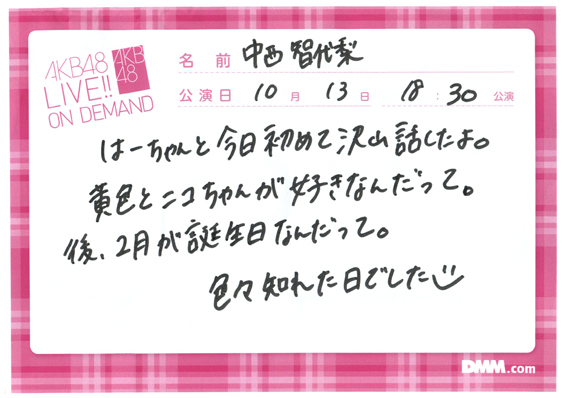 AKB48
LIVE!!
ON DEMAND
AKB
48
名前 中西智代梨
公演日 10月13日 18:30公演
はーちゃんと今日初めて沢山話したよ。
黄色とニコちゃんが好きなんだって。
後、2月が誕生日なんだって。
色々知れた日でした
DMM.com